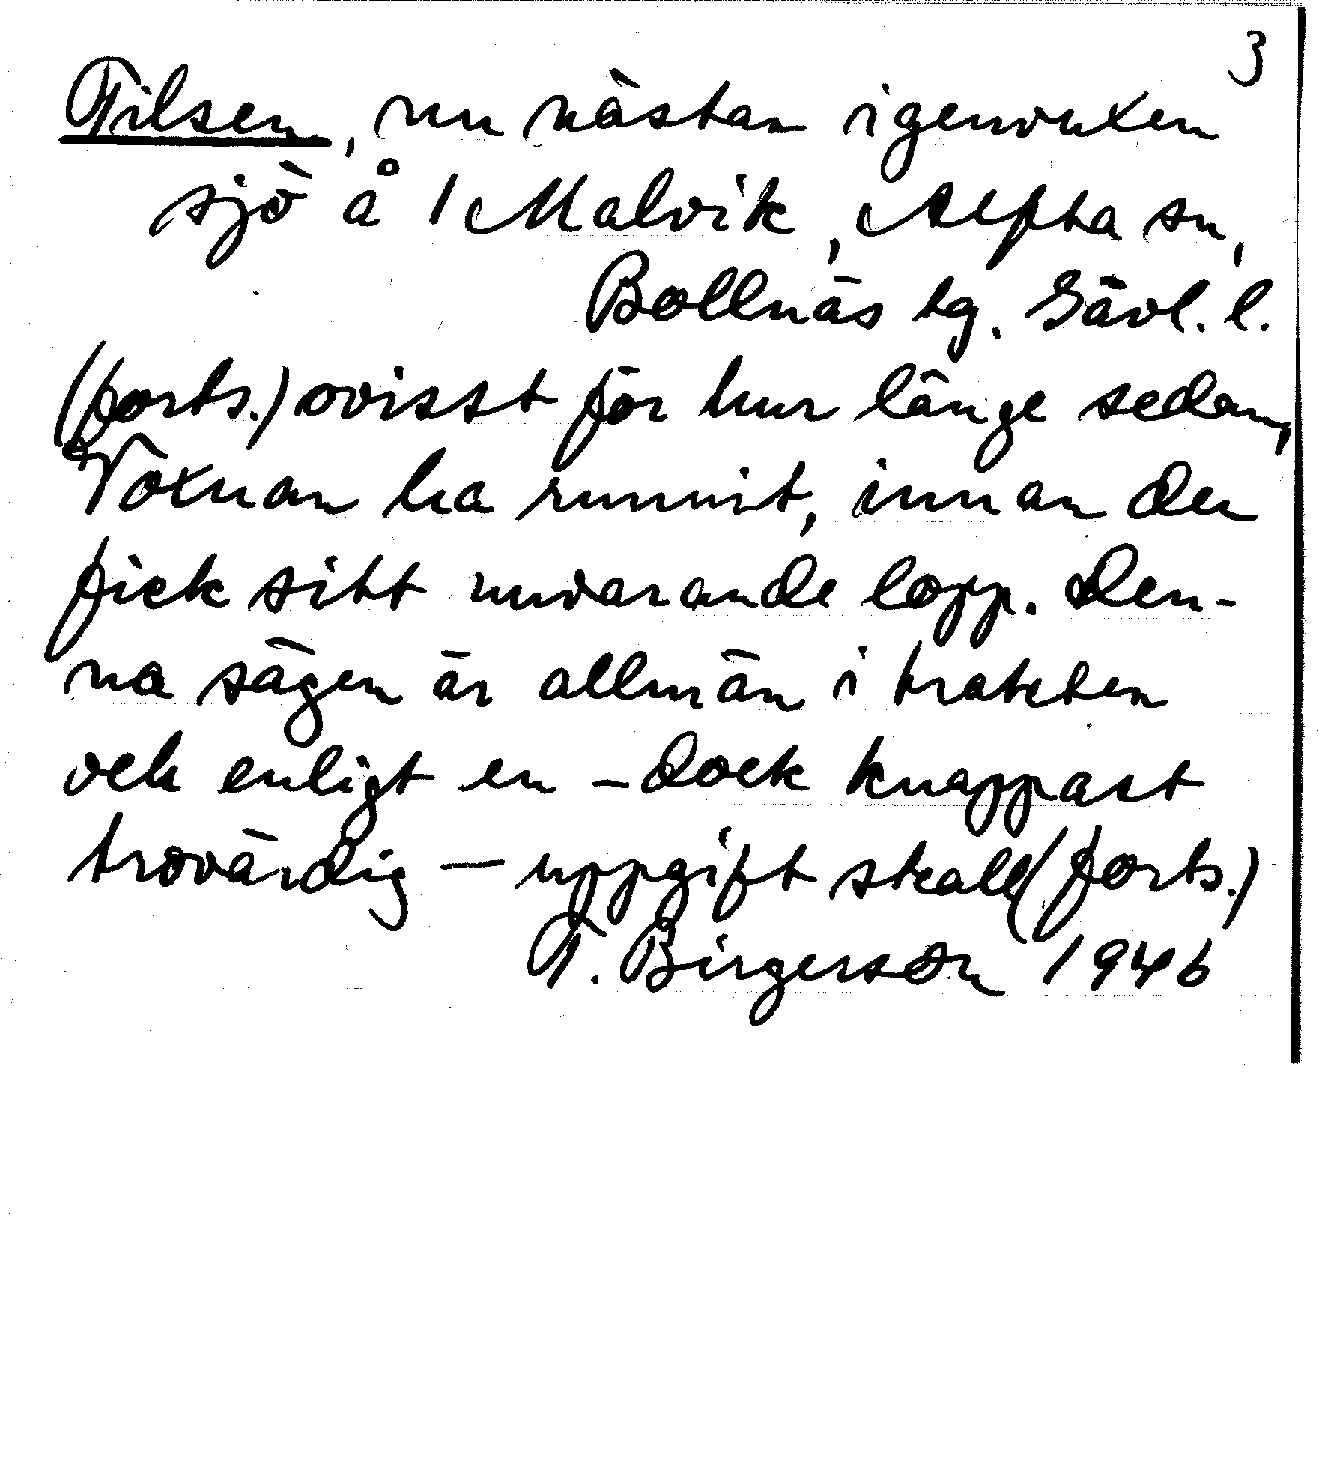 3
Tilsen, nu nästan igenvuxen
sjö å 1 Malvik, Alfta sn,
Bollnäs tg. Gävl. l.
(forts.) ovisst för hur länge sedan,
Voxnan ha runnit, innan den
fick sitt nuvarande lopp. Den-
na sägen är allmän i trakten
och enligt en – dock knappast
trovärdig — uppgift skall (forts.)
T. Birgerson 1946